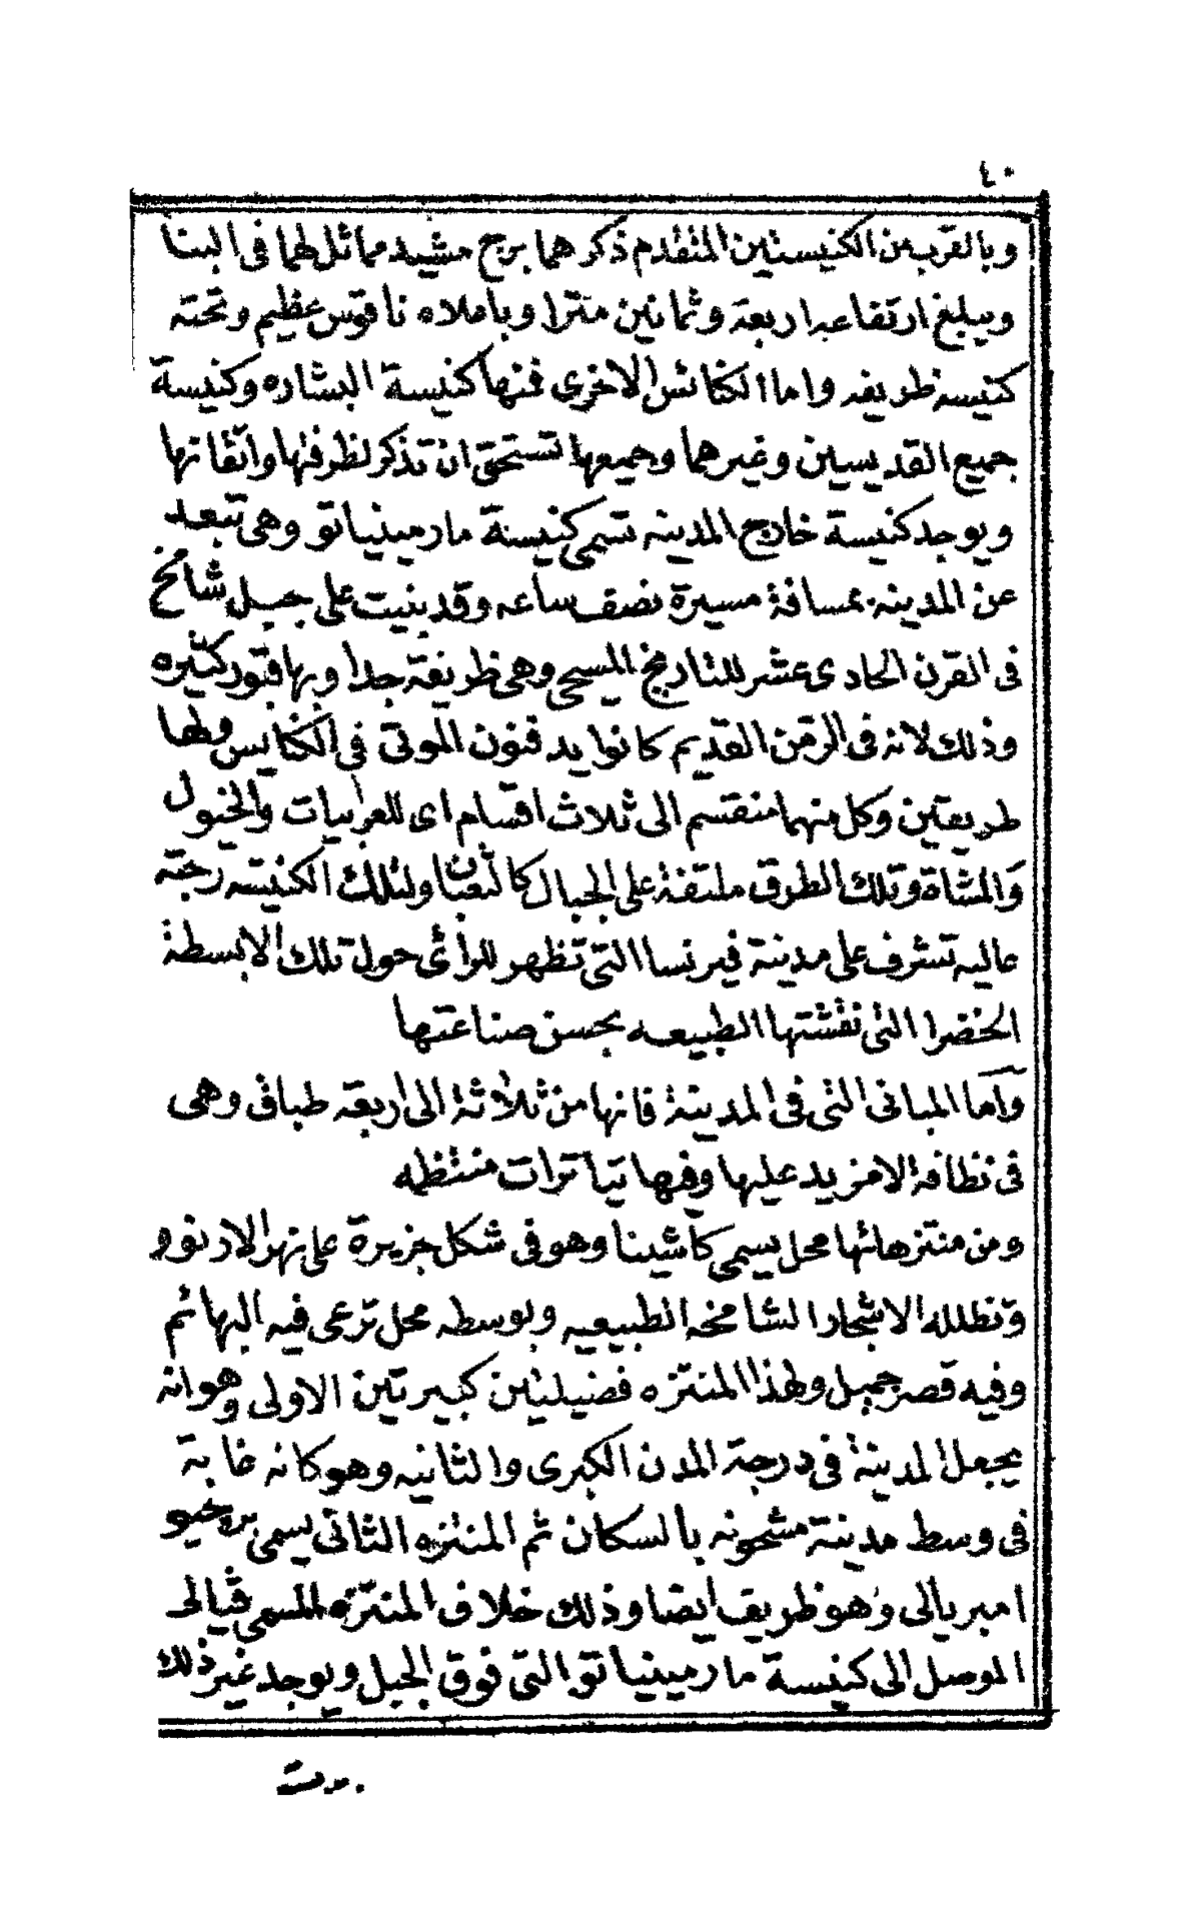 ٤٠
وبالقرب من الكنيستين المتقدم ذكرهما برج مشيد مماثل لهما فى البنا
ويبلغ ارتفاعه اربعة وثمانين مترا وباعلاه ناقوس عظيم وتحته
كنيسه ظريفه واما الكنائس الاخرى فمنها كنيسة البشاره وكنيسة
جميع القديسين وغيرهما وجميعها تستحق ان تذكر لظرفها واتقانها
ويوجد كنيسة خارج المدينه تسمى كنيسة مارمينياتو وهى تبعد
عن المدينه بمسافة مسيرة نصف ساعه وقد بنيت على جبل شامخ
فى القرن الحادى عشر للتاريخ المسيحى وهى ظريفة جدا وبها قبور كثيره
وذلك لانه فى الزمن القديم كانوا يدفنون الموتى فى الكنايس ولها
طريقين وكل منهما منقسم الى ثلاث اقسام اى للعربيات والخيول
والمشاة وتلك الطرق ملتفة على الجبال كالثعبان ولتلك الكنيسه رحبة
عاليه تشرف على مدينة فيرنسا التى تظهر للرائى حول تلك الابسطة
الخضرا التى نقشتها الطبيعه بحسن صناعتها
واما المبانى التى فى المدينة فانها من ثلاثة الى اربعة طباق وهى
فى نظافة لامزيد عليها وفيها تياترات منتظمه
ومن منتزهاتها محل يسمى كاشينا وهو فى شكل جزيرة على نهر الارنوو
وتظلله الاشجار الشامخه الطبيعيه وبوسطه محل ترعى فيه البهائم
وفيه قصر جميل ولهذا المنتزه فضيلتين كبيرتين الاولى وهوانه
يجعل المدينة فى درجة المدن الكبرى والثانيه وهو كانه غابة
فى وسط مدينة مشحونه بالسكان ثم المنتزه الثانى يسمى بوجيو
امبريالى وهو ظريف ايضا وذلك خلاف المنتزه المسمى ڤيالى
الموصل الى كنيسة مارمينياتو التى فوق الجبل ويوجد غير ذلك